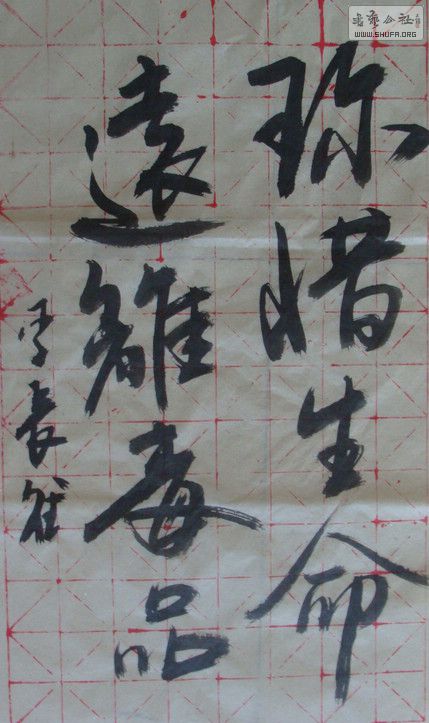 珎惜生命
遠離毒品
書藝公社
WWW.SHUFA.ORG